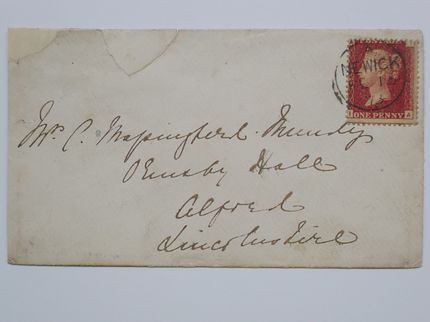 NEWICK
ONE PENNY
A
Mr. C. Massingberd Mundy
Ormsby Hall
Alford
Lincolnshire